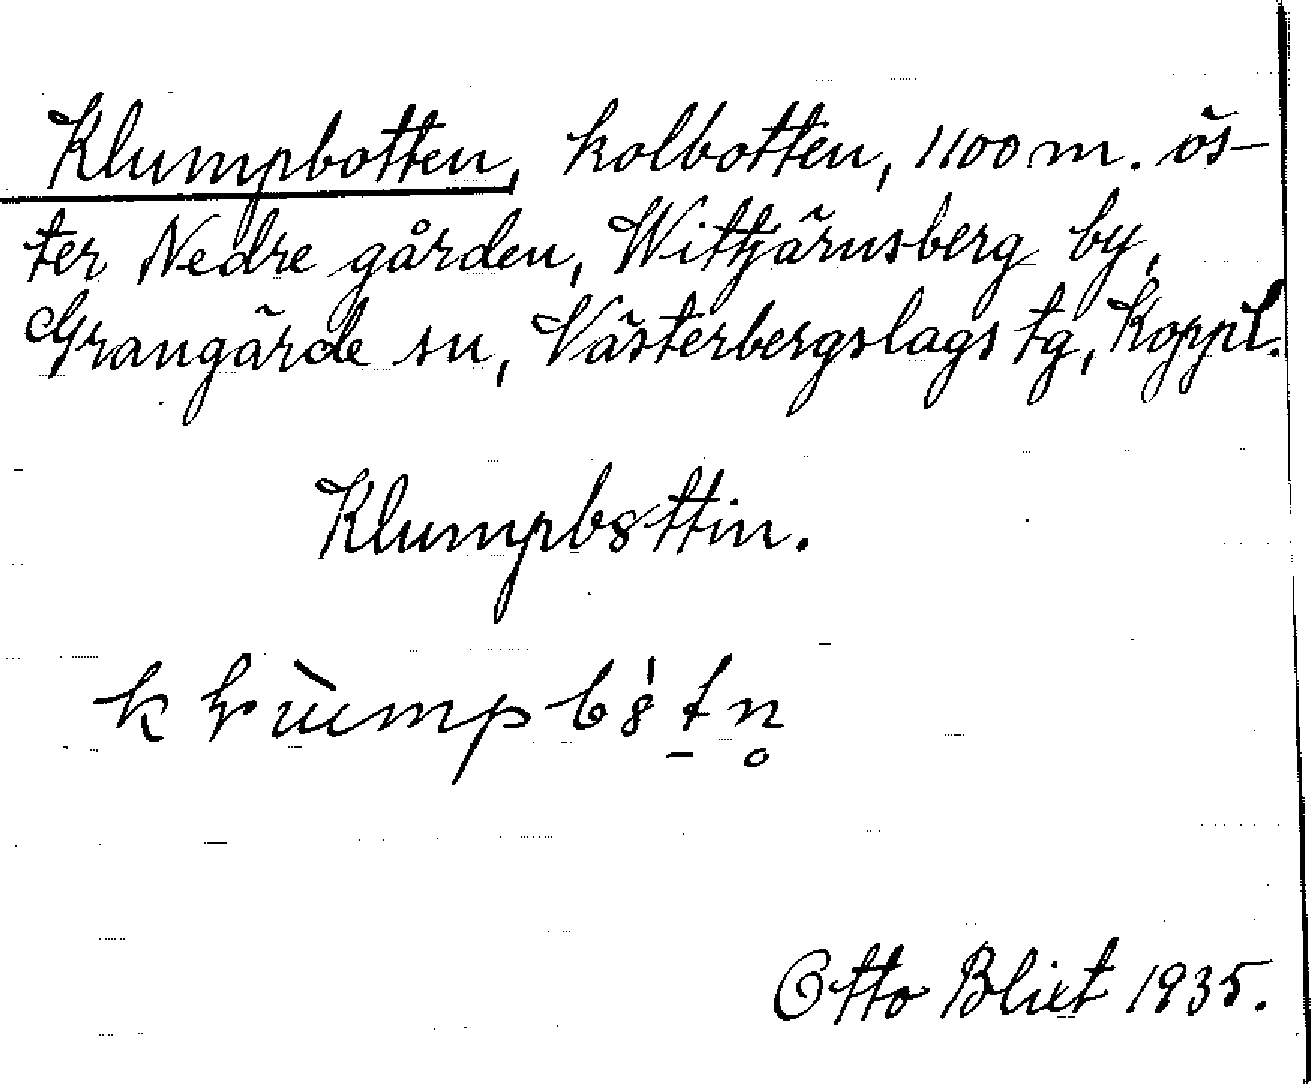 Klumpbotten, kolbotten, 1100 m. ös-
ter Nedre gården, Wittjärnsberg by,
Grangärde sn, Västerbergslags tg, Koppl.
Klumpbȣttin.
Otto Blixt 1935.